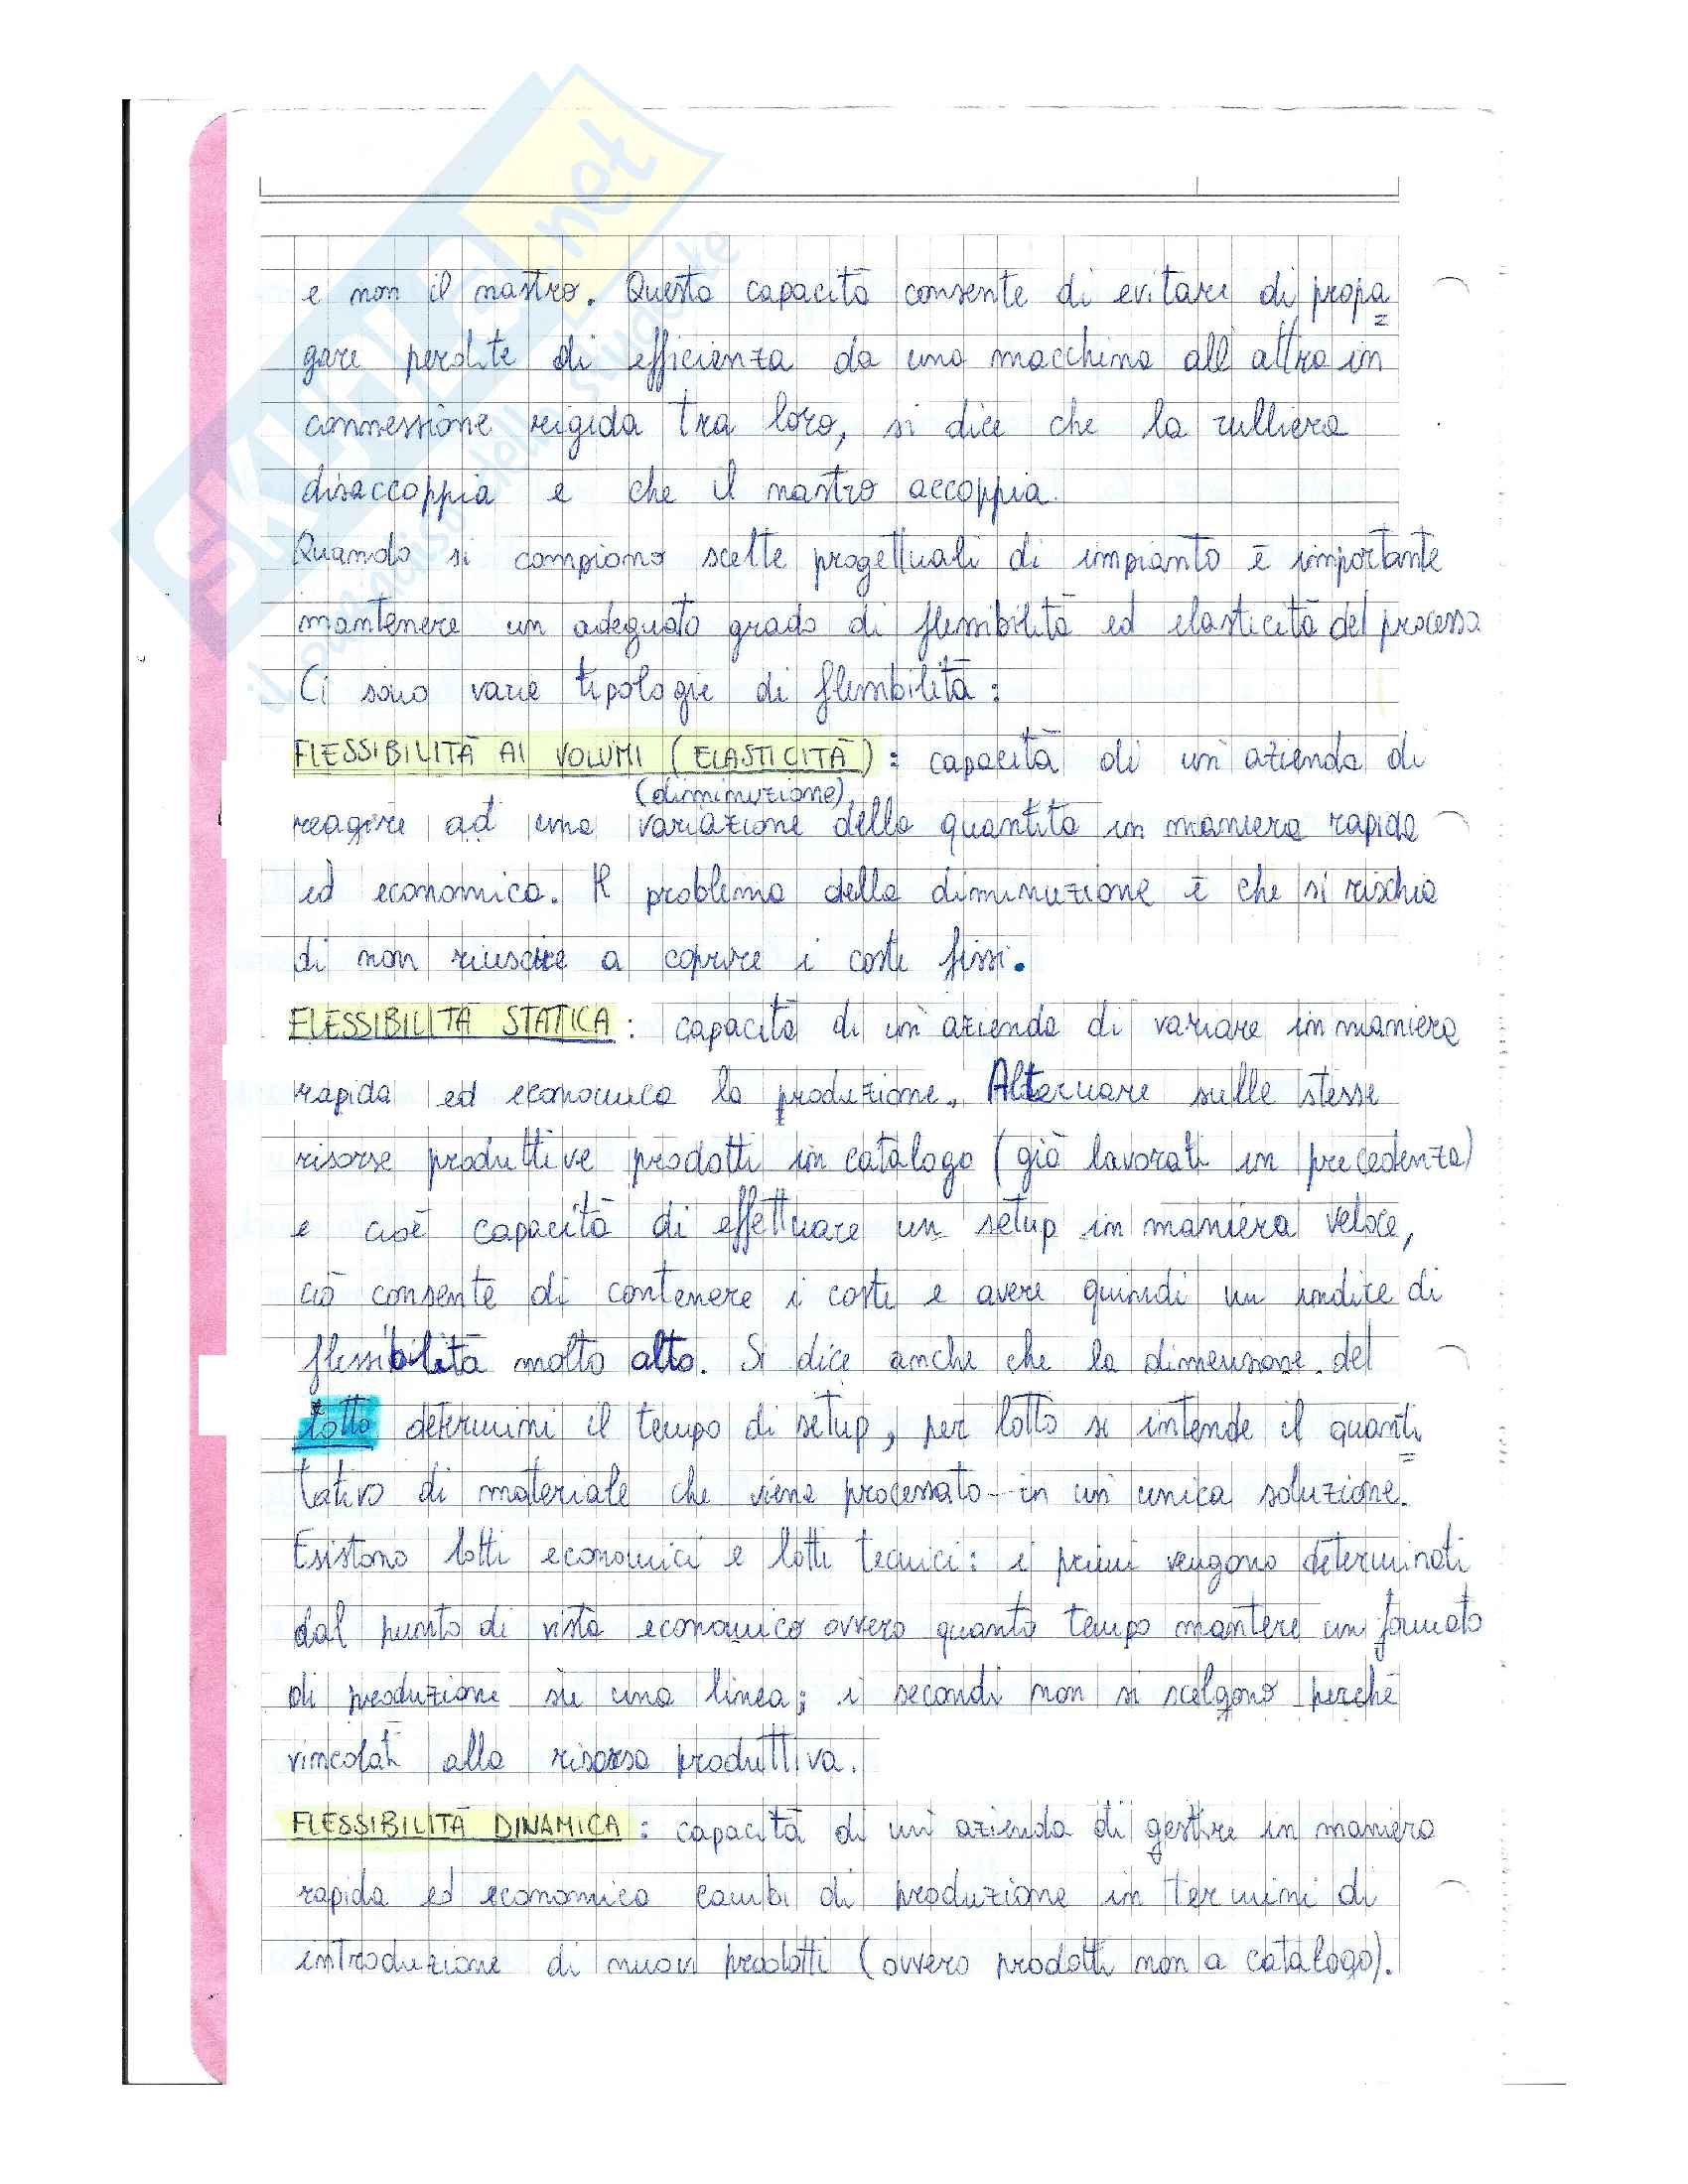 SKUOLA.net
il paradiso dello studente
e non il nastro. Questa capacità consente di evitare di propa
gare perdite di efficienza da una macchina all'altra in
connessione rigida tra loro, si dice che la rulliera
disaccoppia e che il nastro accoppia.
Quando si compiono scelte progettuali di impianto è importante
mantenere un adeguato grado di flessibilità ed elasticità del processo
Ci sono varie tipologie di flessibilità:
FLESSIBILITÀ AI VOLUMI (ELASTICITÀ): capacità di un'azienda di
(diminuzione)
reagire ad una variazione della quantità in maniera rapida
ed economica. Il problema della diminuzione è che si rischia
di non riuscire a coprire i costi fissi.
FLESSIBILITÀ STATICA: capacità di un'azienda di variare in maniera
rapida ed economica la produzione. Alternare sulle stesse
risorse produttive prodotti in catalogo (già lavorati in precedenza)
e cioè capacità di effettuare un setup in maniera veloce,
ciò consente di contenere i costi e avere quindi un indice di
flessibilità molto alto. Si dice anche che la dimensione del
lotto determini il tempo di setup, per lotto si intende il quanti
tativo di materiale che viene processato in un'unica soluzione.
Esistono lotti economici e lotti tecnici: i primi vengono determinati
dal punto di vista economico ovvero quanto tempo mantere un formato
di produzione su una linea; i secondi non si scelgono perché
vincolati alla risorsa produttiva.
FLESSIBILITÀ DINAMICA: capacità di un'azienda di gestire in maniera
rapida ed economica cambi di produzione in termini di
introduzione di nuovi prodotti (ovvero prodotti non a catalogo).